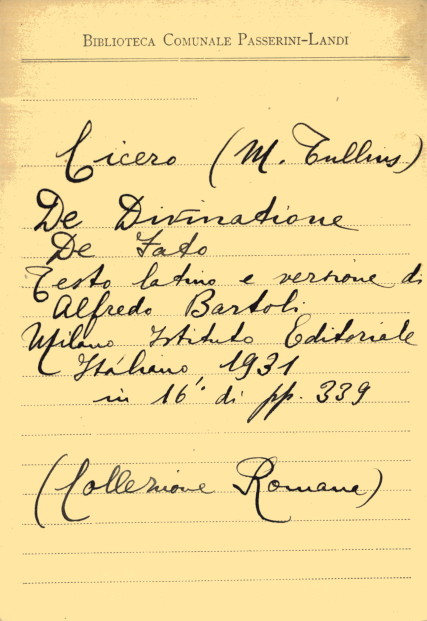 BIBLIOTECA COMUNALE PASSERINI-LANDI
Cicero (M. Tullius)
De Divinatione
De Fato
Testo latino e versione di
Alfredo Bartoli
Milano Istituto Editoriale
Italiano 1931
in 16° di pp. 339
(Collezione Romana)